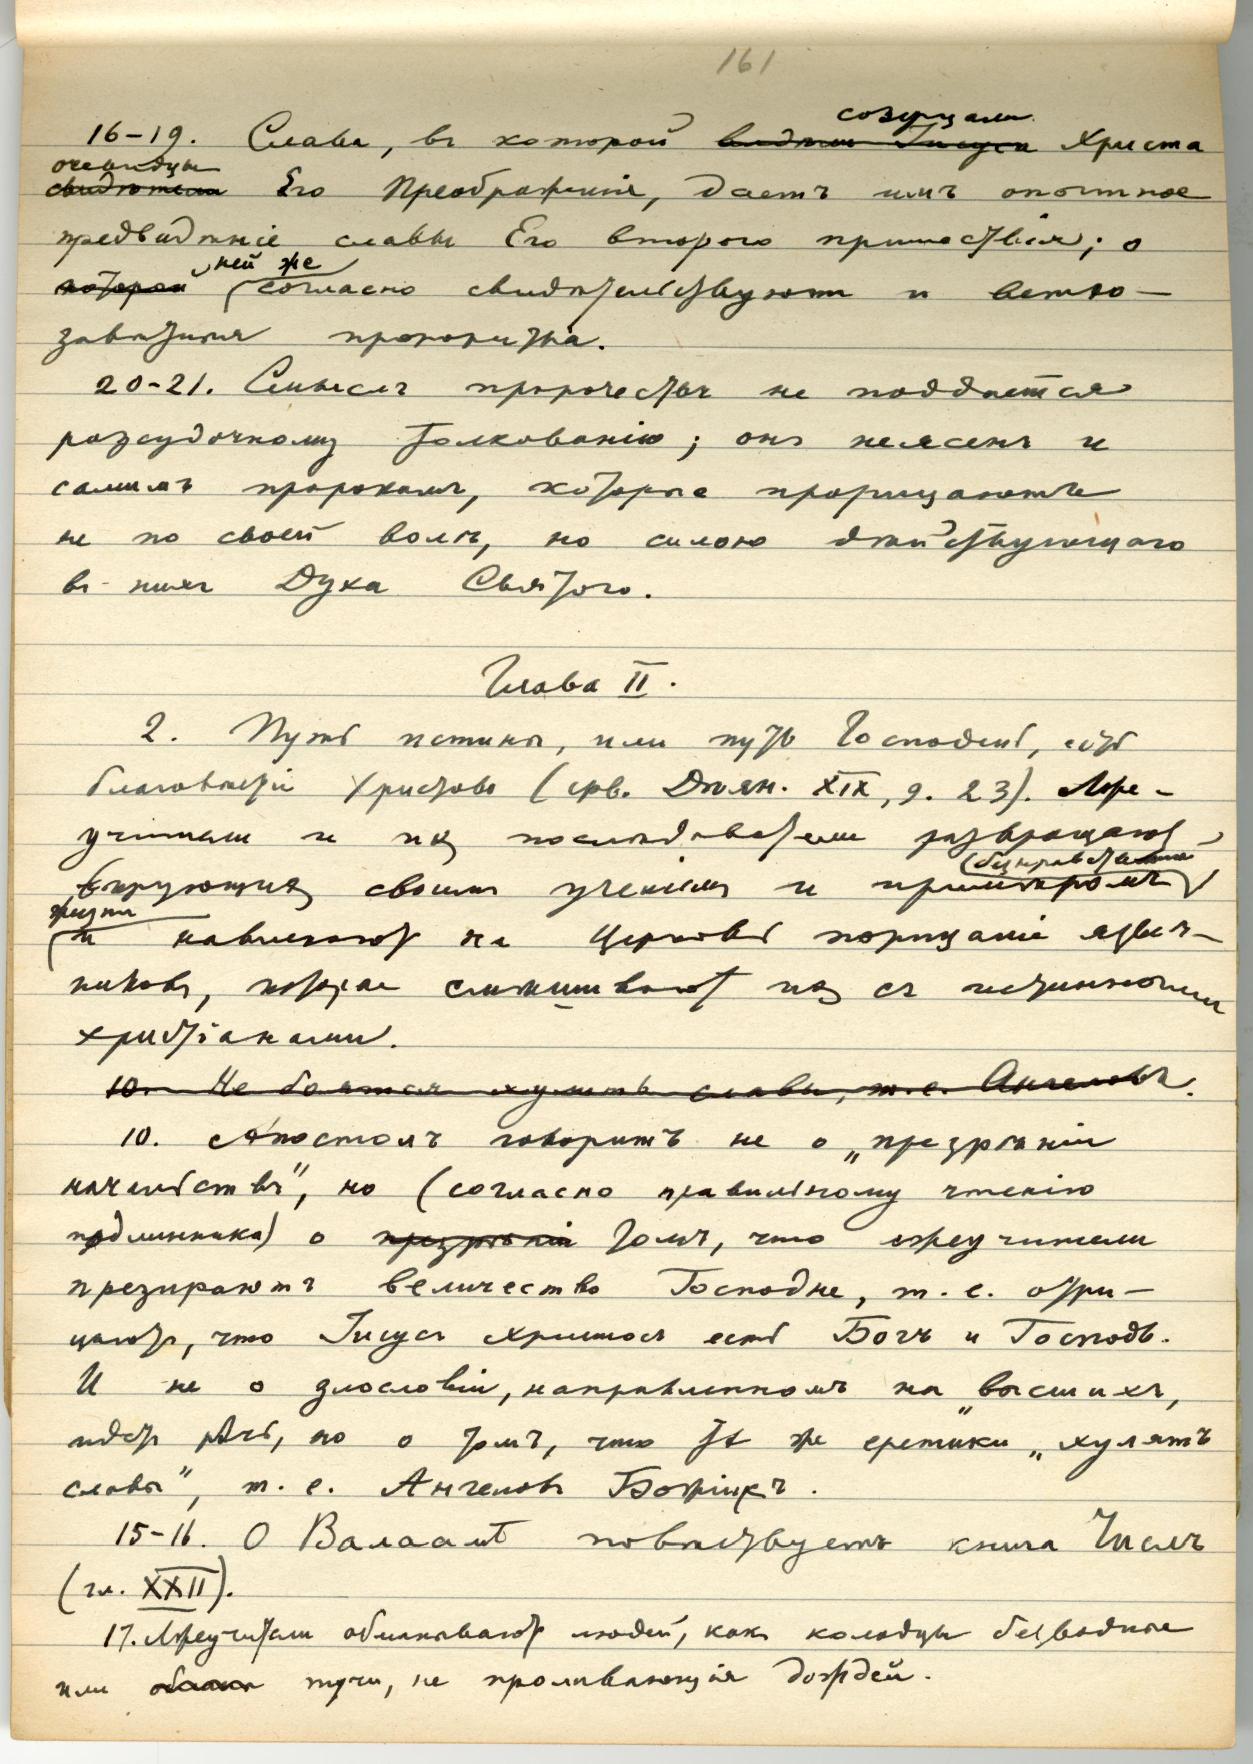 161
созерцали
16-19. Слава, въ которой видѣли Іисуса Христа
очевидцы
свидѣтели Его Преображенія, даетъ имъ опытное
предвидѣніе славы Его второго пришествія; о
ней же
которой согласно свидѣтельствуютъ и ветхо-
завѣтныя пророчества.
20-21. Смыслъ пророчествъ не поддается
разсудочному толкованію; онъ неясенъ и
самимъ пророкамъ, которые прорицаютъ
не по своей волѣ, но силою дѣйствующаго
въ нихъ Духа Святого.
Глава II.
2. Путь истины, или путь Господень, есть
благовѣстіе Христово (срв. Дѣян. XIX, 9. 23). Лже-
учители и ихъ послѣдователи развращаютъ
безнравственной
вѣрующихъ своимъ ученіемъ и примѣромъ
жизни
и навлекаютъ на Церковь порицаніе языч-
никовъ, которые смѣшиваютъ ихъ съ истинными
христіанами.
10. Не боятся хулить славы, т.е. Ангеловъ.
10. Апостолъ говоритъ не о „презрѣніи
начальствъ", но (согласно правильному чтенію
подлинника) о презрѣніи томъ, что лжеучители
презираютъ величество Господне, т. е. отри-
цаютъ, что Іисусъ Христосъ есть Богъ и Господь.
И не о злословіи, направленномъ на „высшихъ,
идетъ рѣчь, но о томъ, что тѣ же еретики „хулятъ
славы", т. е. Ангеловъ Божіихъ.
15-16. О Валаамѣ повѣствуетъ книга Числъ
(гл. XXII).
17. Лжеучители обманываютъ людей, какъ колодцы безводные
или облака тучи, не проливающія дождей.